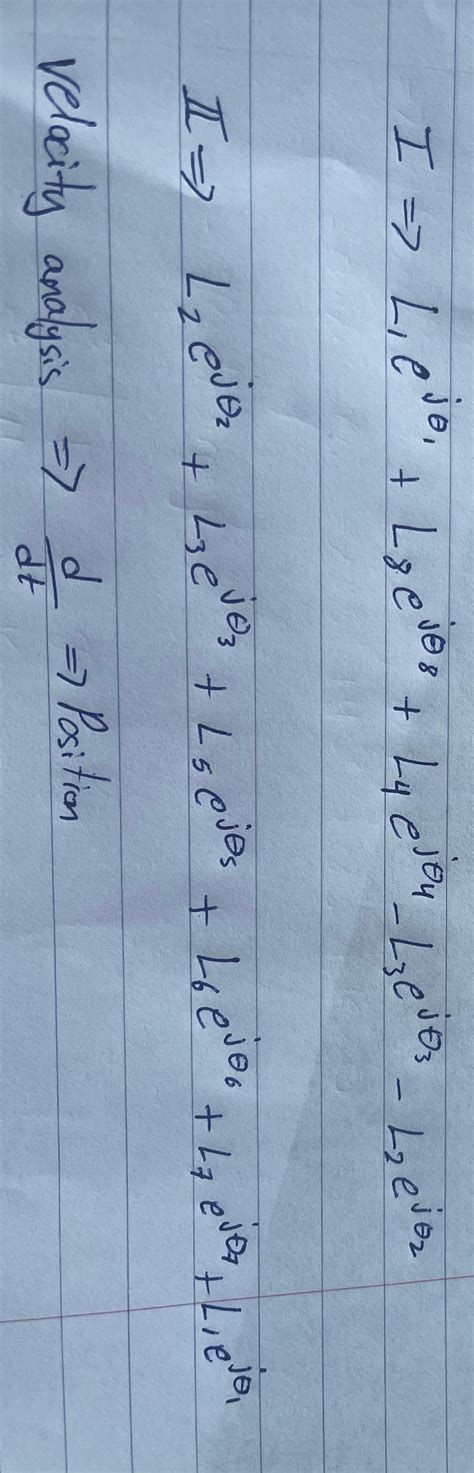 I ⇒ L₁e^jθ₁ + L₈e^jθ₈ + L₄e^jθ₄ - L₃e^jθ₃ - L₂e^jθ₂
II ⇒ L₂e^jθ₂ + L₃e^jθ₃ + L₅e^jθ₅ + L₆e^jθ₆ + L₇e^jθ₇ + L₁e^jθ₁
velocity analysis ⇒ d/dt ⇒ Position